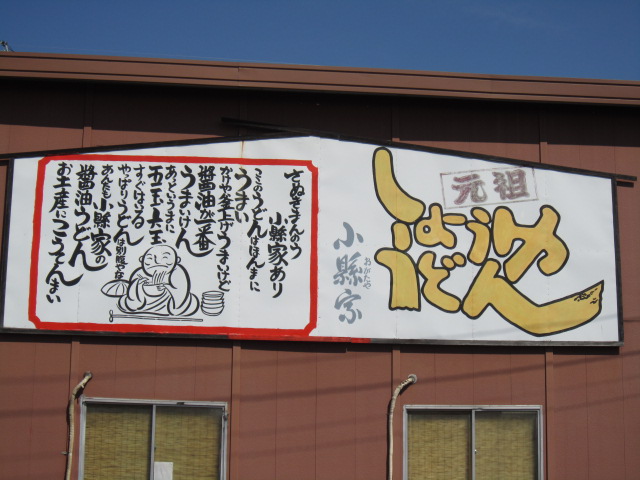 元祖
しょうゆ
うどん
小縣家
おがたや
さぬきまんのう
小縣家あり
ここのうどんはほんまに
うまい
かまや釜上げうまいけど
醤油が一番
うまいけん
あっというまに
五玉六玉
すぐはいる
やっぱりうどんは別腹かな
あなたも小縣家の
醤油うどん
お土産にこうてんまい